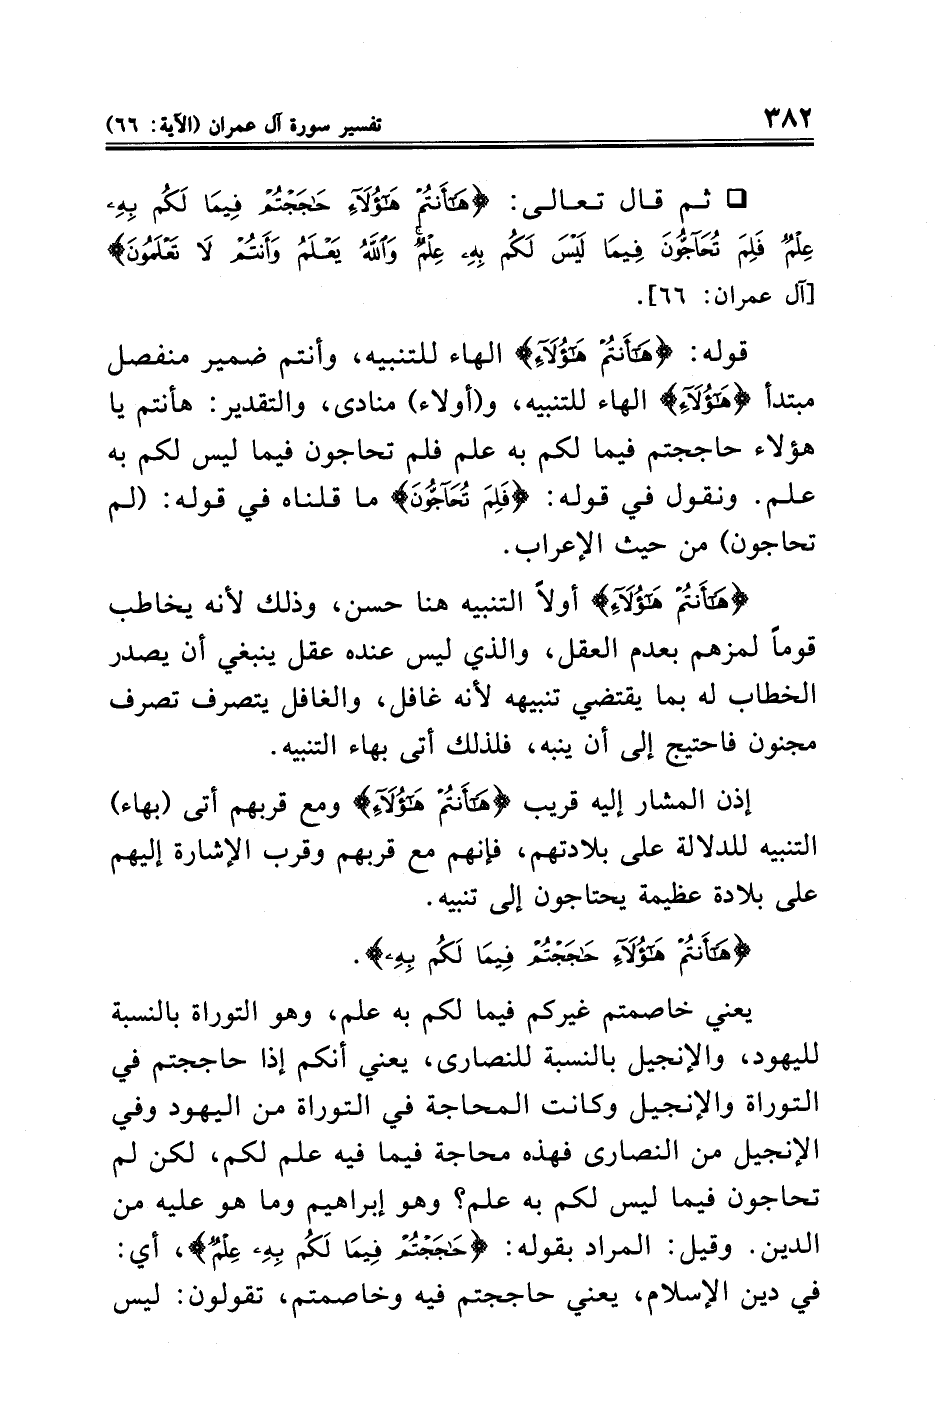 ٣٨٢
تفسير سورة آل عمران (الآية: ٦٦)
□ ثم قال تعالى: ﴿هَٰٓأَنتُمْ هَٰٓؤُلَآءِ حَٰجَجْتُمْ فِيمَا لَكُم بِهِۦ
عِلْمٌ فَلِمَ تُحَآجُّونَ فِيمَا لَيْسَ لَكُم بِهِۦ عِلْمٌ ۚ وَٱللَّهُ يَعْلَمُ وَأَنتُمْ لَا تَعْلَمُونَ﴾
[آل عمران: ٦٦].
قوله: ﴿هَٰٓأَنتُمْ هَٰٓؤُلَآءِ﴾ الهاء للتنبيه، وأنتم ضمير منفصل
مبتدأ ﴿هَٰٓؤُلَآءِ﴾ الهاء للتنبيه، و(أولاء) منادى، والتقدير: هأنتم يا
هؤلاء حاججتم فيما لكم به علم فلم تحاجون فيما ليس لكم به
علم. ونقول في قوله: ﴿فَلِمَ تُحَآجُّونَ﴾ ما قلناه في قوله: (لم
تحاجون) من حيث الإعراب.
﴿هَٰٓأَنتُمْ هَٰٓؤُلَآءِ﴾ أولاً التنبيه هنا حسن، وذلك لأنه يخاطب
قوماً لمزهم بعدم العقل، والذي ليس عنده عقل ينبغي أن يصدر
الخطاب له بما يقتضي تنبيهه لأنه غافل، والغافل يتصرف تصرف
مجنون فاحتيج إلى أن ينبه، فلذلك أتى بهاء التنبيه.
إذن المشار إليه قريب ﴿هَٰٓأَنتُمْ هَٰٓؤُلَآءِ﴾ ومع قربهم أتى (بهاء)
التنبيه للدلالة على بلادتهم، فإنهم مع قربهم وقرب الإشارة إليهم
على بلادة عظيمة يحتاجون إلى تنبيه.
﴿هَٰٓأَنتُمْ هَٰٓؤُلَآءِ حَٰجَجْتُمْ فِيمَا لَكُم بِهِۦ﴾.
يعني خاصمتم غيركم فيما لكم به علم، وهو التوراة بالنسبة
لليهود، والإنجيل بالنسبة للنصارى، يعني أنكم إذا حاججتم في
التوراة والإنجيل وكانت المحاجة في التوراة من اليهود وفي
الإنجيل من النصارى فهذه محاجة فيما فيه علم لكم، لكن لم
تحاجون فيما ليس لكم به علم؟ وهو إبراهيم وما هو عليه من
الدين. وقيل: المراد بقوله: ﴿حَٰجَجْتُمْ فِيمَا لَكُم بِهِۦ عِلْمٌ﴾، أي:
في دين الإسلام، يعني حاججتم فيه وخاصمتم، تقولون: ليس